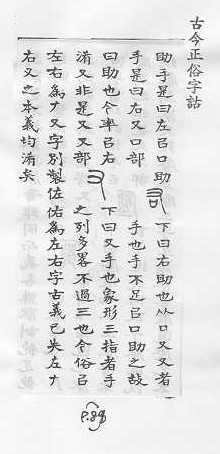 古今正俗字詁
助手是曰左㠯口助 下曰右助也从口又又者
手是曰右又口部 手也手不足㠯口助之故
曰助也今率㠯右 下曰又手也象形三指者手
淆又非是又又部 之列多畧不過三也今俗㠯
左右為𠂇又字別製佐佑為左右字古義已失左𠂇
右又之本義均淆矣